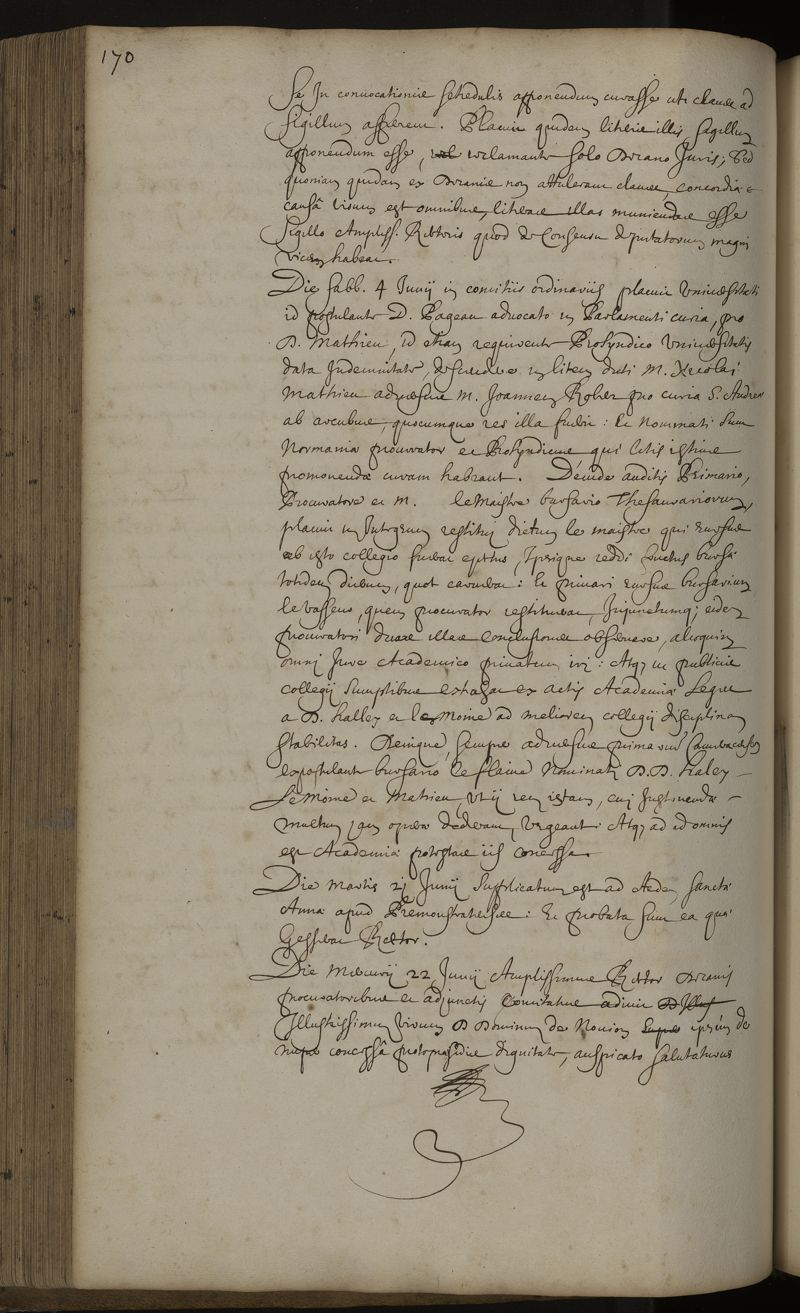 170
se In convocationis schedulis apponendum curasse uti claves ad
sigillum afferrent. Placuit quidem literis illis sigillum
apponendum esse, reclamante solo Decano Juris; Sed
quoniam quidam ex Decanis non attulerant claves, concordiæ
causâ visum est omnibus, literas illas muniendas esse
Sigillo Ampliss. Rectoris quod de Consensu deputatorum magni
vicem habeat.
Die sabb. 4 Junij in comitiis ordinariis placuit Universitati
id postulante D. Pageau advocato in Parlamenti curia, pro
D. Mathieu, id etiam requirente Prosyndico Universitatis
data Indemnitate, descendere in litem dicti M. Nicolai
Mathieu adversus M. Joannem Rober pro curia S. Andreæ
ab arcubus, quocumque res illa fuerit: Et Nominati sunt
Normaniæ procurator et Prosyndicus qui litis istius
promovendæ curam habeant. Deinde auditis Primario,
Procuratore et M. le Maistre bursario Thesaurariorum,
placuit in Integrum restitui dictum le maistre qui
ab isto collegio fuerat, ipsique reddi bursæ
totidem dierum, quot caruerat: Et privari rursus bursarium
le vasseus, quem procurator restituerat, Injunctumq; eidem
procuratori duas illas conclusiones observare, alioquin
omni Jure Academico privatum iri: Atq; ut publicis
collegij sumptibus ex actis Academiæ Leges
a D. halley et le Moine ad meliorem collegij disciplinam
stabilitas. Denique, semper adversus primarium Cameracensem
expostulante bursario le flaive Nominati D.D. haley
Le Moine et Mathieu, Vtij rem istam, cui Instruendæ
multum jam operæ dederant, vrgeant: Atq; ad id omnis
est Academiæ potestas iis concessa.
Die martis 21 Junij supplicatum est ad Ædem sanctæ
Annæ apud Premonstratenses: Et probata sunt ea quæ
Gesserat Rector.
Die Mercurij 22 Junij Amplissimus Rector Decanis
procuratoribus et adjunctis comitatus adiuit
Illustrissimum virum D Dominum de Novion ipsum de
concessâ protopræsidis dignitate, auspicato salutaturus